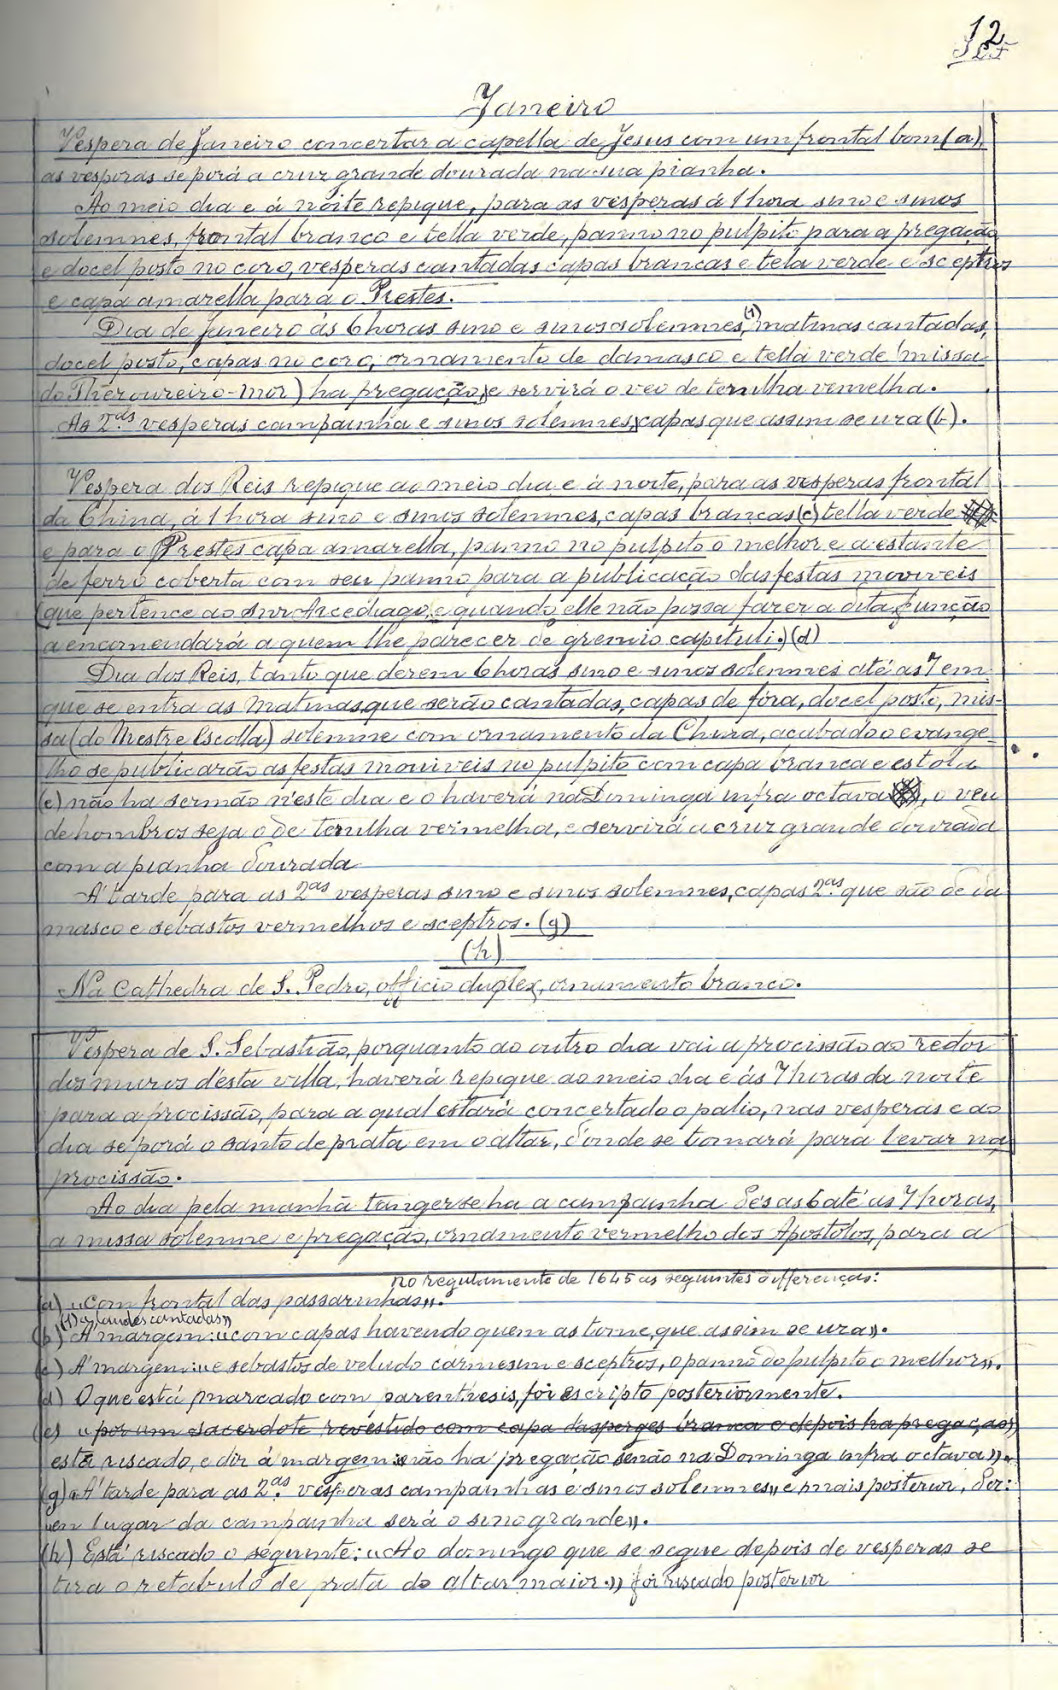 12
Janeiro
Vespera de Janeiro concertar a capella de Jesus com um frontal bom (a),
as vesperas se porá a cruz grande dourada na sua pianha.
Ao meio dia e á noite repique, para as vesperas á 1 hora sino e sinos
solemnes, frontal branco e tella verde, panno no pulpito para a pregação
e docel posto no coro, vesperas cantadas capas brancas e tela verde e sceptros
e capa amarella para o Prestes.
Dia de Janeiro ás 6 horas sino e sinos solemnes, (1) matinas cantadas,
docel posto, capas no coro, ornamento de damasco e tella verde (missa
do Thezoureiro-Mor) ha pregação, e servirá o veo de ternilha vermelha.
As 2.as vesperas campainha e sinos solemnes, capas que assim se uza (b).
Vespera dos Reis repique ao meio dia e á noite, para as vesperas frontal
da China, á 1 hora sino e sinos solemnes, capas brancas (c) tella verde
e para o Prestes capa amarella, panno no pulpito o melhor e a estante
de ferro coberta com seu panno para a publicação das festas moviveis
(que pertence ao snr Arcediago, e quando elle não possa fazer a dita funcção
a encomendará a quem lhe parecer de gremio capituli.) (d)
Dia dos Reis, tanto que derem 6 horas sino e sinos solemnes até as 7 em
que se entra as Matinas, que serão cantadas, capas de fóra, docel posto, mis-
sa (do Mestre Escolla) solemne com ornamento da China, acabado o evange-
lho se publicarão as festas moviveis no pulpito com capa branca e estola
(e) não ha sermão n'este dia e o haverá na Dominga infra octava, o veu
de hombros seja o de ternilha vermelha, e servirá a cruz grande dourada
com a pianha dourada
A' tarde para as 2as vesperas sino e sinos solemnes, capas 2.as que são de da
masco e sebastos vermelhos e sceptros. (g)
(h)
Na Cathedra de S. Pedro, officio duplex, ornamento branco.
Vespera de S. Sebastião, porquanto ao outro dia vai a procissão ao redor
dos muros d'esta villa, haverá repique ao meio dia e ás 7 horas da noite
para a procissão, para a qual estará concertado o palio, nas vesperas e ao
dia se porá o santo de prata em o altar, d'onde se tomará para levar na
procissão.
Ao dia pela manhã tanger-se ha a campainha dés as 6 até as 7 horas,
a missa solemne e pregação, ornamento vermelho dos Apostolos, para a
no regulamento de 1645 as seguintes differenças:
(a) «com frontal das passarinhas».
(1) «laudes cantadas»
(b) A' margem: «com capas havendo quem as tome, que assim se uza».
(c) A' margem: «e sebastos de veludo carmesim e sceptros, o panno do pulpito o melhor».
(d) O que está marcado com parenthesis, foi escripto posteriormente.
(e) «por um sacerdote revestido com capa dasperges branca e depois ha pregação»
está riscado, e diz á margem: «não ha pregação senão na Dominga infra octava».
(g) «A' tarde para as 2.as vesperas campainhas e sinos solemnes», e mais posterior,
«em lugar da campainha será o sino grande».
(h) Está riscado o seguinte: «Ao domingo que se segue depois de vesperas se
tira o retabulo de prata do altar maior.» foi riscado posterior